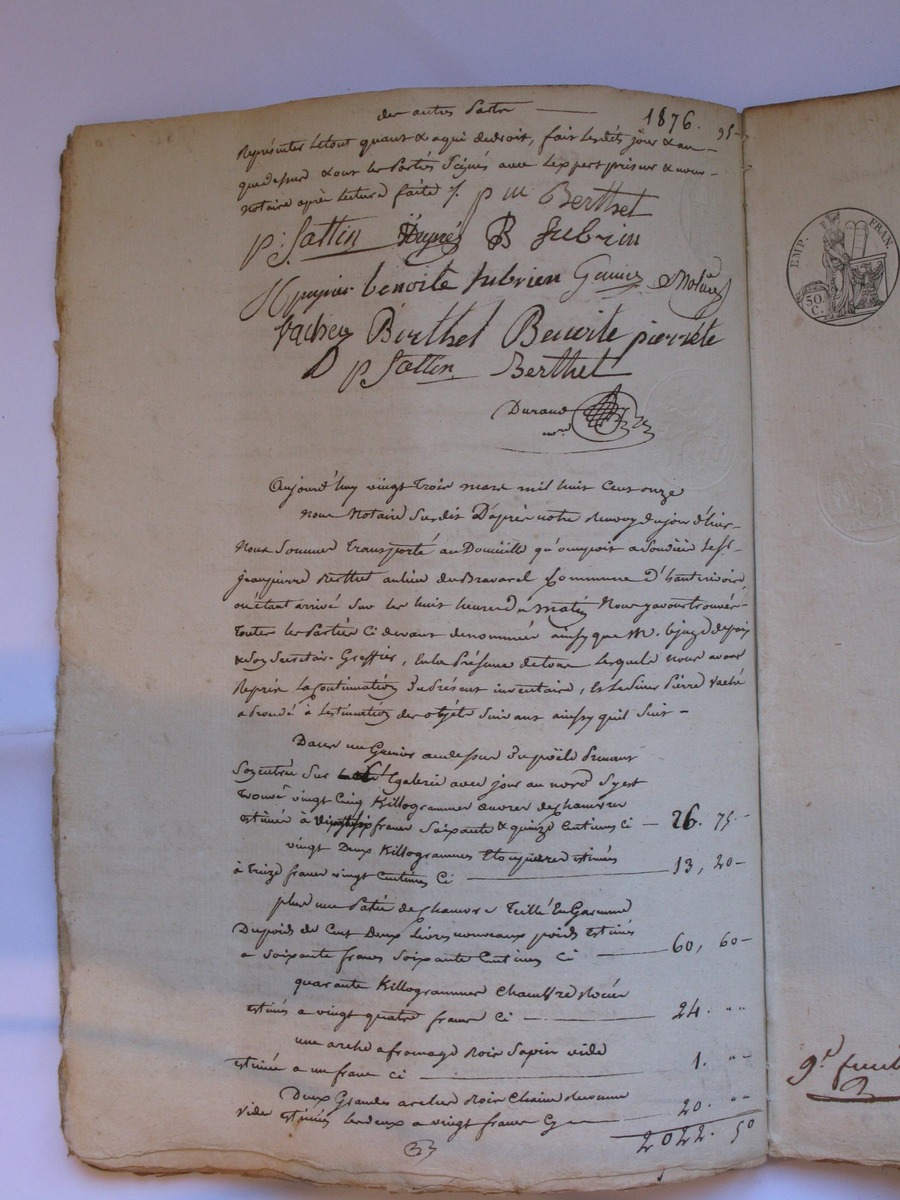 des autres parts — 1876. 95-
Représenter le tout quant & a qui de droit, fait lesdits jour & an
que dessus & ont les Parties signés avec l'expert priseur & nous
Notaire après lecture faite p m Berthet
p: fattin Dupré B Jubrien
papier benoite Jubrien
Vacher Berthet Benoite pierrete
D p fattin Berthet
Durand
nre
Aujourd'huy vingt trois mars mil huit cent onze
nous Notaire susdit D'après notre Renvoy du jour d'hier
Nous sommes transporté au Domicille qu'occupoit
jean pierre Berthet au lieu du Bravarel Commune D'hauterivoire
ou étant arrivé sur les huit heures du matin Nous y avons trouvér
toutes les Parties ci devant denommées ainsy que M. le juge de paix
& son Secretaire Greffier, En la Présence de tous lesquels nous avons
Repris la Continuation Du présent inventaire, Et le sieur Pierre Vaché
a procédé à l'estimation des objets suivant ainsy qu'il suit -
Dans un Grenier au dessus Du poële Prenant
son entrée sur galerie avec jour au nord S'y est
trouvé vingt Cinq Killogrammes œuvres de chanvres
estimés à francs soixante & quinze Centimes Ci — 26. 75-
vingt Deux Killogrammes Etoupes estimés
à treize francs vingt Centimes Ci — 13, 20-
plus une Partie de chanvre Teillé
Du poids de Cent Deux livres nouveaux poids Estimés
a soixante francs soixante Centimes Ci — 60, 60-
quarante Killogrammes Chanvre
estimés a vingt quatre francs Ci — 24. " "
une arche a fromage Bois Sapin vide
estimée a un franc ci — 1. " "
Deux Grandes arches Bois Chaine
vide estimés les deux a vingt francs Cy — 20. " "
2022. 50
EMP. FRAN.
50 C.
9d feuil